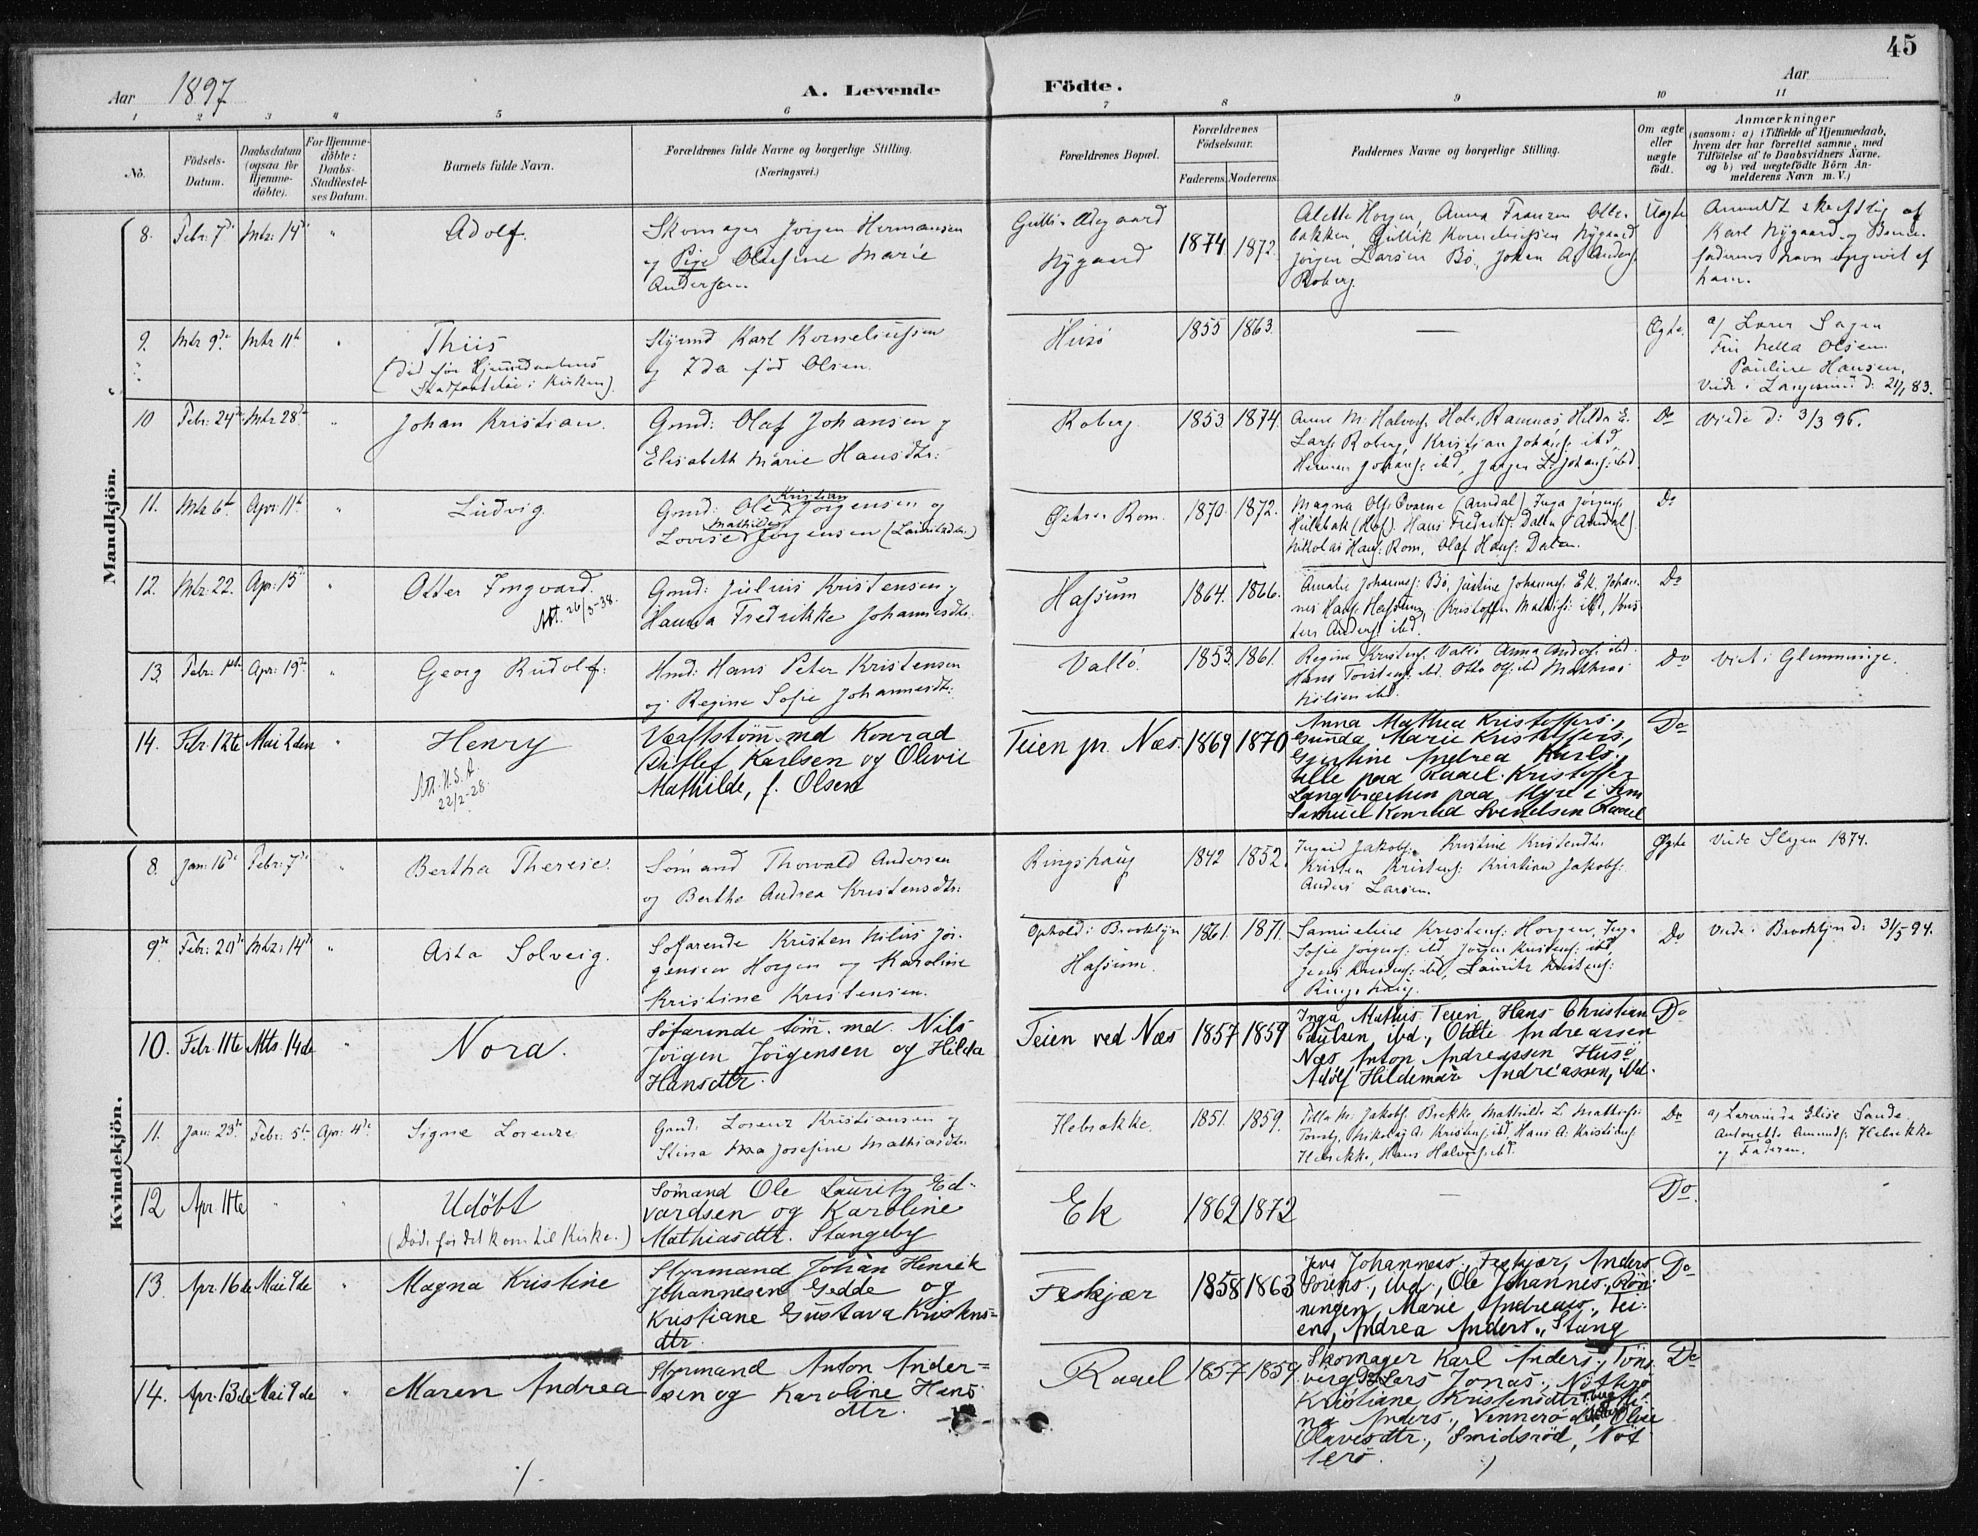 45
Aar 1897
A. Levende Födte.
Aar
1 2 3 4 5 6 7 8 9 10 11
No.
Födsels-Datum.
Daabsdatum (ogsaa for Hjemme-döbte).
For Hjemme-döbte: Daabs-Stadfæstel-ses Datum.
Barnets fulde Navn.
Forældrenes fulde Navne og borgerlige Stilling. (Næringsvei.)
Forældrenes Bopæl.
Forældrenes Födselsaar.
Faderens. Moderens.
Faddernes Navne og borgerlige Stilling.
Om ægte eller uægte födt.
Anmærkninger
(saasom: a) i Tilfælde af Hjemmedaab,
hvem der har forrettet samme, med
Tilföielse af to Daabsvidners Navne,
og b) ved uægtefödte Börn An-
melderens Navn m. V.)
Mandkjön.
8. Febr: 7de Mts: 14de " Adolf.
Skomager Jørgen Hermansen
og Pige Olufine Marie
Andersen.
Nygaard
1874 1872.
Alette Horgen, Anna Franzen Olle-
bakken, Gullik Korneliussen Nygaard
Jørgen Larsen Bø, Johan A. Anders.
Roberg.
Uægte
Anmeldt skriftlig af
Karl Nygaard og Barne-
faderens Navn opgivet af
ham.
9. Mts 9de Mts 11te "
Thiis
(Død før Hjemmedaabens
Stadfæstelse i Kirken)
Styrmd Karl Korneliussen
og Ida fød Olsen.
Husø
1855 1863.
—
Ægte.
a/ Lærer Sagen
Frk Nella Olsen.
Pauline Hansen.
Viede i Langesund d: 21/1 83.
10 Febr: 24de Mts 28de " Johan Kristian.
Grmd: Olaf Johansen og
Elisabeth Marie Hansdtr:
Roberg
1853 1874.
Anne M. Halvors. Hole, Ramnæs, Hilda E.
Lars. Roberg, Kristian Johans. ibd,
Herman Johans. ibd, Jørgen L. Johans. ibd.
Do
Viede d: 3/3 96.
11. Mts 6te Apr: 11te " Ludvig.
Grmd: Ole Kristian Jørgensen og
Lovise Mathilde Jørgensen
Østre Rom.
1870. 1872.
Magna Ols. (Arndal) Inga Jørgens.
Hans Fredriks. Dalen (Arndal).
Nikolai Hans. Rom, Olaf Hans. Dalen.
Do
12. Mts: 22. Apr: 15de " Otter Ingvard.
Att. 26/3-38.
Grmd: Julius Kristensen og
Hanna Fredrikke Johannesdtr.
Hassum
1864. 1866.
Amalie Johannes: Bø, Justine Johannes: Ek, Johan-
nes Hans: Hassum, Kristoffer Mathis: ibd, Kris-
ten Anders: ibd.
Do
13 Febr: 1ste Apr: 19de " Georg Rudolf.
Hmd: Hans Peter Kristensen
og Regine Sofie Johannesdtr:
Vallø.
1853. 1861.
Regine Kristens: Vallø Anna Anders: ibd.
Hans Torstens: ibd. Otto Ols: ibd Mathias
Nilsen ibd.
Do
Viet i Glemminge.
14. Febr: 12te Mai 2den " Henry
Att. U.S.A.
22/2-28.
Værftstøm.md Konrad
Detlef Karlsen og Olivie
Mathilde, f. Olsen
Teien pr. Næs.
1869 1870
Anna Mathea Kristoffers.,
Gunda Marie Kristoffers.,
Gjertine Andrea Karls.
alle paa Raael. Kristoffer
Langbrækken paa Myre i Sem
Samuel Konrad Svendsen Raael
Do
Kvindekjön.
8. Jan: 16de Febr: 7de " Bertha Therese.
Sømand Thorvald Andersen
og Berthe Andrea Kristensdtr:
Ringshaug
1842 1852.
Ingrid Jakobs. Kristine Kristensdtr.
Kristen Kristens: Kristian Jakobs:
Anders Larsen.
Ægte
Viede Slagen 1874.
9de Febr: 20de Mts: 14de " Asta Solveig.
Søfarende Kristen Nilius Jør-
gensen Horgen og Karoline
Kristine Kristensen.
Ophold i Brooklyn
Hassum.
1861. 1871.
Samueline Kristens: Horgen, Inga
Sofie Jørgens: ibd, Jørgen Kristens: ibd
Jens Kristens: ibd, Lauritz Kristens:
Ringshaug.
Do
Viede i Brooklyn d: 31/5 94.
10. Febr 11te Mts 14de " Nora.
Søfarende tøm. md. Nils
Jørgen Jørgensen og Hilda
Hansdtr.
Teien ved Næs
1857 1859
Inga Mathis. Teien, Hans Christian
Paulsen ibd., Oldte Andreassen
Næs, Anton Andreassen Husø
Adolf Hildemar Andreassen, ibd.
Do
11. Jan: 23de Febr: 5te Apr: 4de Signe Lorenze.
Grmd: Lorenz Kristiansen og
Stina Josefine Mathiasdtr.
Hebække.
1851. 1859.
Tilla M. Jakobs. Brekke, Mathilde L. Mathis:
Tønsb., Nikolaj A. Kristens: ibd, Hans A. Kristians.
Hebække, Hans Halvors: ibd.
Do
a/ Lærerinde Elise Sande.
Antonette Amunds: Hebække
og Faderen.
12 Apr 11te " " Udøbt
(Død før det kom til Kirke.)
Sømand Ole Lauritz Ed-
vardsen og Karoline
Mathiasdtr. Stangeby
Ek
1862 1872
—
Do.
13. Apr 16de Mai 9de " Magna Kristine
Styrmand Johan Henrik
Johannesen Gedde og
Kristiane Gustava Kristens=
dtr.
Feskjær
1858 1863
Jens Johannes., Feskjær, Anders
Sørens., ibd., Ole Johannes., Røn-
ningen, Marie Andreas., Tei-
en, Andrea Anders., Stang
Do
14. Apr. 13de Mai 9de " Maren Andrea
Styrmand Anton Ander=
sen og Karoline Hans
dtr.
Raael
1857 1859
Skomager Karl Anders., Tøns-
berg, Lars Jonas., Nøtterø
Kristiane Kristensdtr.
na Anders., Vennerød, Olise
Olavesdtr., Smidsrød, Nøt
terø.
Do